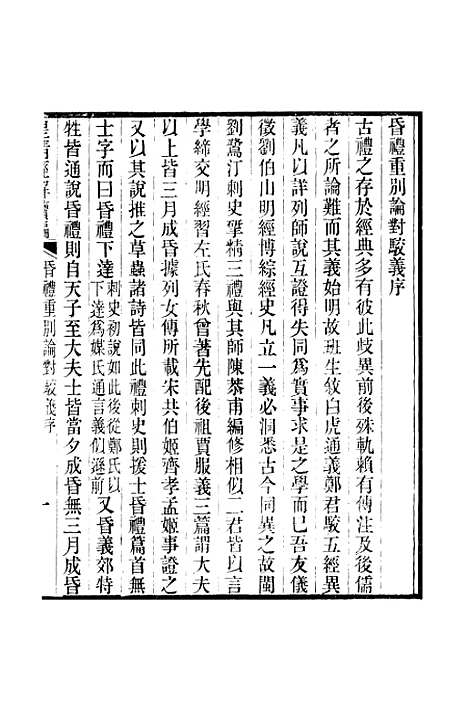 昏禮重別論對駁義序
古禮之存於經典多有彼此歧異前後殊軌賴有傳注及後儒
者之所論難而其義始明故班生敘白虎通義鄭君駁五經異
義凡以詳列師說互證得失同爲實事求是之學而已吾友儀
徵劉伯山明經博綜經史凡立一義必洞悉古今同異之故閩
劉鷺汀刺史肈精三禮與其師陳恭甫編修相似二君皆以言
學締交明經習左氏春秋曾著先配後祖賈服義三篇謂大夫
以上皆三月成昏據列女傳所載宋共伯姬齊孝孟姬事證之
又以其說推之草蟲諸詩皆同此禮刺史則援士昏禮篇首無
士字而曰昏禮下達刺史初說如此後從鄭氏以下達爲媒氏通言義似遜前又昏義郊特
牲皆通說昏禮則自天子至大夫士皆當夕成昏無三月成昏
皇清經解續編
昏禮重別論對駁義序
一